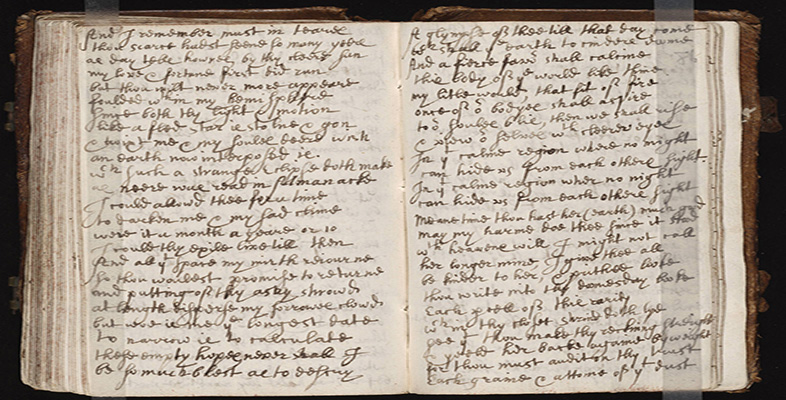 And I remember must in teares
thou scarce hadst seene so many yeres
as day tells howres, by thy cleere sun
my love & fortune first did run
but thou wilt never more appeare
foulded wthin my hemispheare
since both thy light & motion
like a fled star is & gon
& twixt me & my soules deere wish
an earth now interposed is
wch such a strange Eclipse doth make
as neere was read in Almanacke
I could allow thee for a time
to darken me & my sad clime
were it a month a yeare or 10
I would thy exile live till then
And all yt space my mirth adiourne
So thou wouldst promise to returne
and putting off thy ashy shrowd
at length disperse my sorrowes clowd
but woe is me ye longest date
to narrow is to calculate
these empty hopes never shall I
be so much blest as to descry
A glympse off thee till that day come
wch shall ye earth to cinders dome
And a fierce favor shall calcine
this body off ye world like thine
my little world, that fit off fire
once off or bodyes shall aspire
to or soules blis, then we shall rise
& view or selves wth cleerer eyes
In yt calme region where no night
can hide us from each others sight.
In yt calme region wher no night
can hide us from each others sight
Meane time thou hast her (earth) much good
may my harme doe thee since it stood
wth heavens will I might not call
her longer mine I give thee all
be kinder to her, & prithee looke
thou write into thy domesday booke
Each parcell off this rarity
wch in thy closet shrind doth lye
see yt thou make thy reckning streight
& yeeld her backe againe by weight
for thou must audit on thy trust
Each graine & attome of yt dust